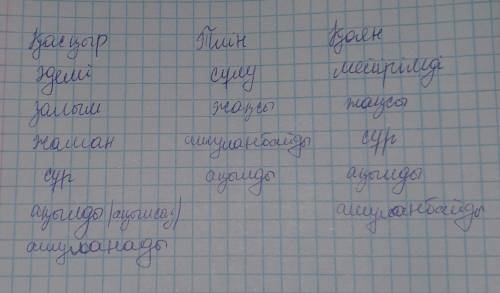 Қасқыр Пілін Қоян
Әдемі сұлу мейірімді
залым жақсы жақсы
жаман ашуланбайды сұр
сұр ақылды ақылды
ақылды (ақылсыз) ашуланбайды
ашуланады